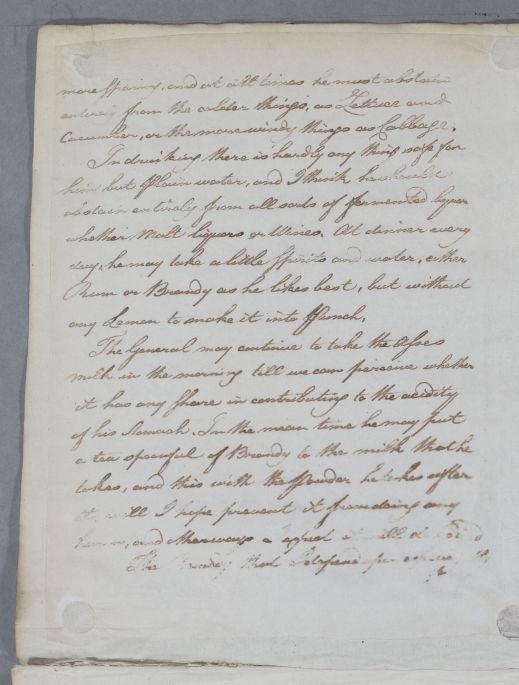 more sparing, and at all times he must abstain
entirely from the colder things, as Lettuce and
Cucumber, or the more windy things as Cabbage.
In drinking there is hardly any thing safe for
him but plain water, and I think he should
abstain entirely from all sorts of fermented liquor
whether Malt liquors or Wines. At dinner every
day, he may take a little Spirits and water, either
Rum or Brandy as he likes best, but without
any Lemon to make it into Punch.
The General may continue to take the Asses
milk in the morning till we can perceive whether
it has any share in contributing to the acidity
of his Stomach. In the mean time he may put
a tea spoonful of Brandy to the milk that he
takes, and this with the Powder he takes after
it, will I hope prevent it from doing any
harm, and
The that